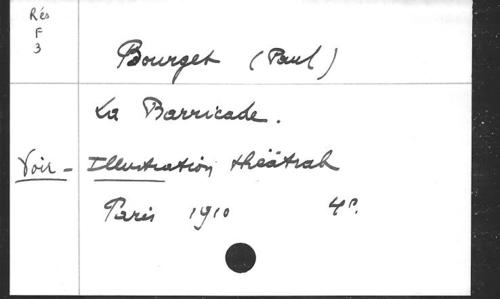 Rés
F
3
Bourget (Paul)
La Barricade.
Voir - Illustration théâtrale
Paris 1910 4°.